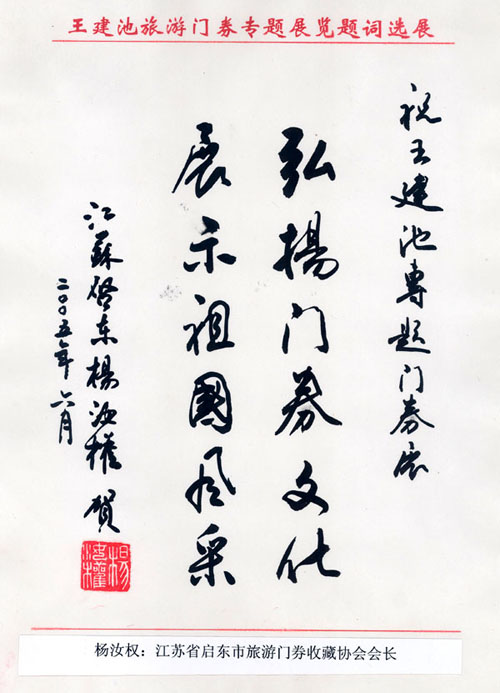 王建池旅游门券专题展览题词选展
祝王建池專題门券展
弘揚门券文化
展示祖國风采
江蘇啓东楊汝權 贺
二〇〇五年六月
楊汝權
杨汝权：江苏省启东市旅游门券收藏协会会长